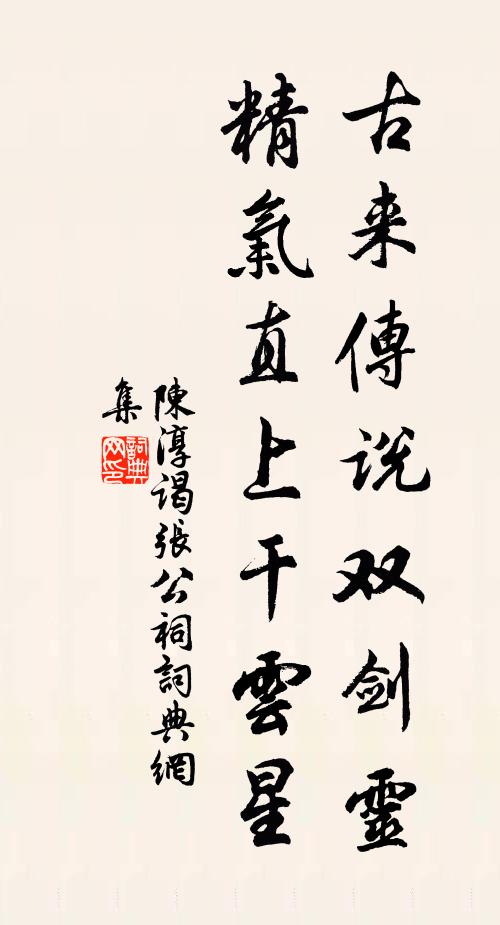 古来傳説双剑靈
精氣直上干雲星
陳淳谒張公祠詞典網
集
詞典网印